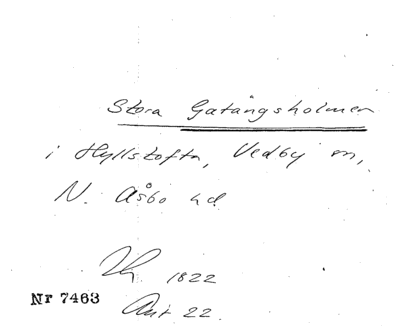 Stora Gatångsholmen
i Hyllstofta, Vedby sn,
N. Åsbo hd
1822
Nr 7463
Akt 22.